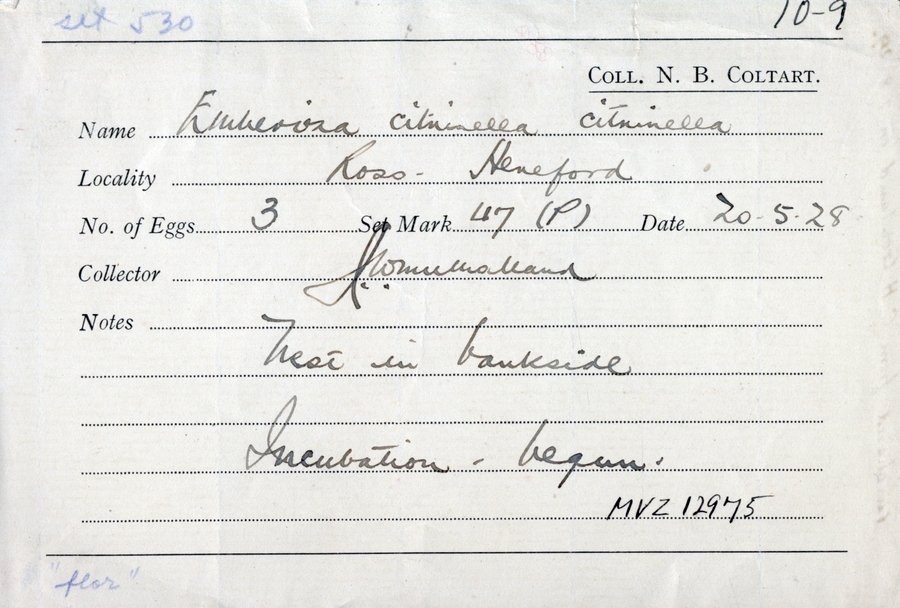 set 530
10-9
COLL. N. B. COLTART.
Name Emberiza citrinella citrinella
Locality Ross - Hereford
No. of Eggs 3 Set Mark 47 (P) Date 20-5-28
Collector
Notes
Nest in bankside
Incubation - begun.
MVZ 12975
"flor"